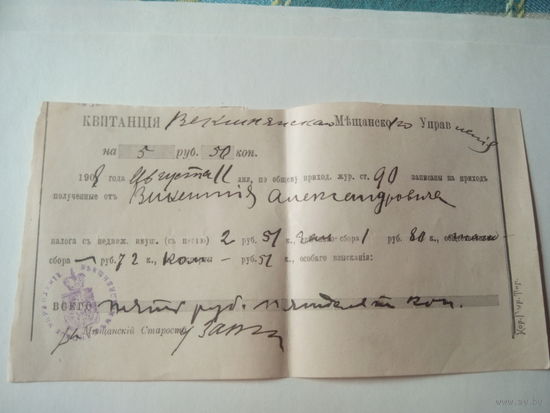 КВИТАНЦІЯ Векшнянскаго Мѣщанскаго Управленія
на 5 руб. 50 коп.
1908 года Августа 11 дня, по общему приход. жур. ст. 90 записаны на приходъ
полученные отъ Викентія Александровича
налога съ недвиж. имущ. (съ пенею) 2 руб. 51 к., сбора 1 руб. 80 к.,
сбора — руб. 72 к., — руб. 51 к., особаго взысканія:
ВСЕГО пять руб. пятьдесятъ коп.
Мѣщанскій Староста